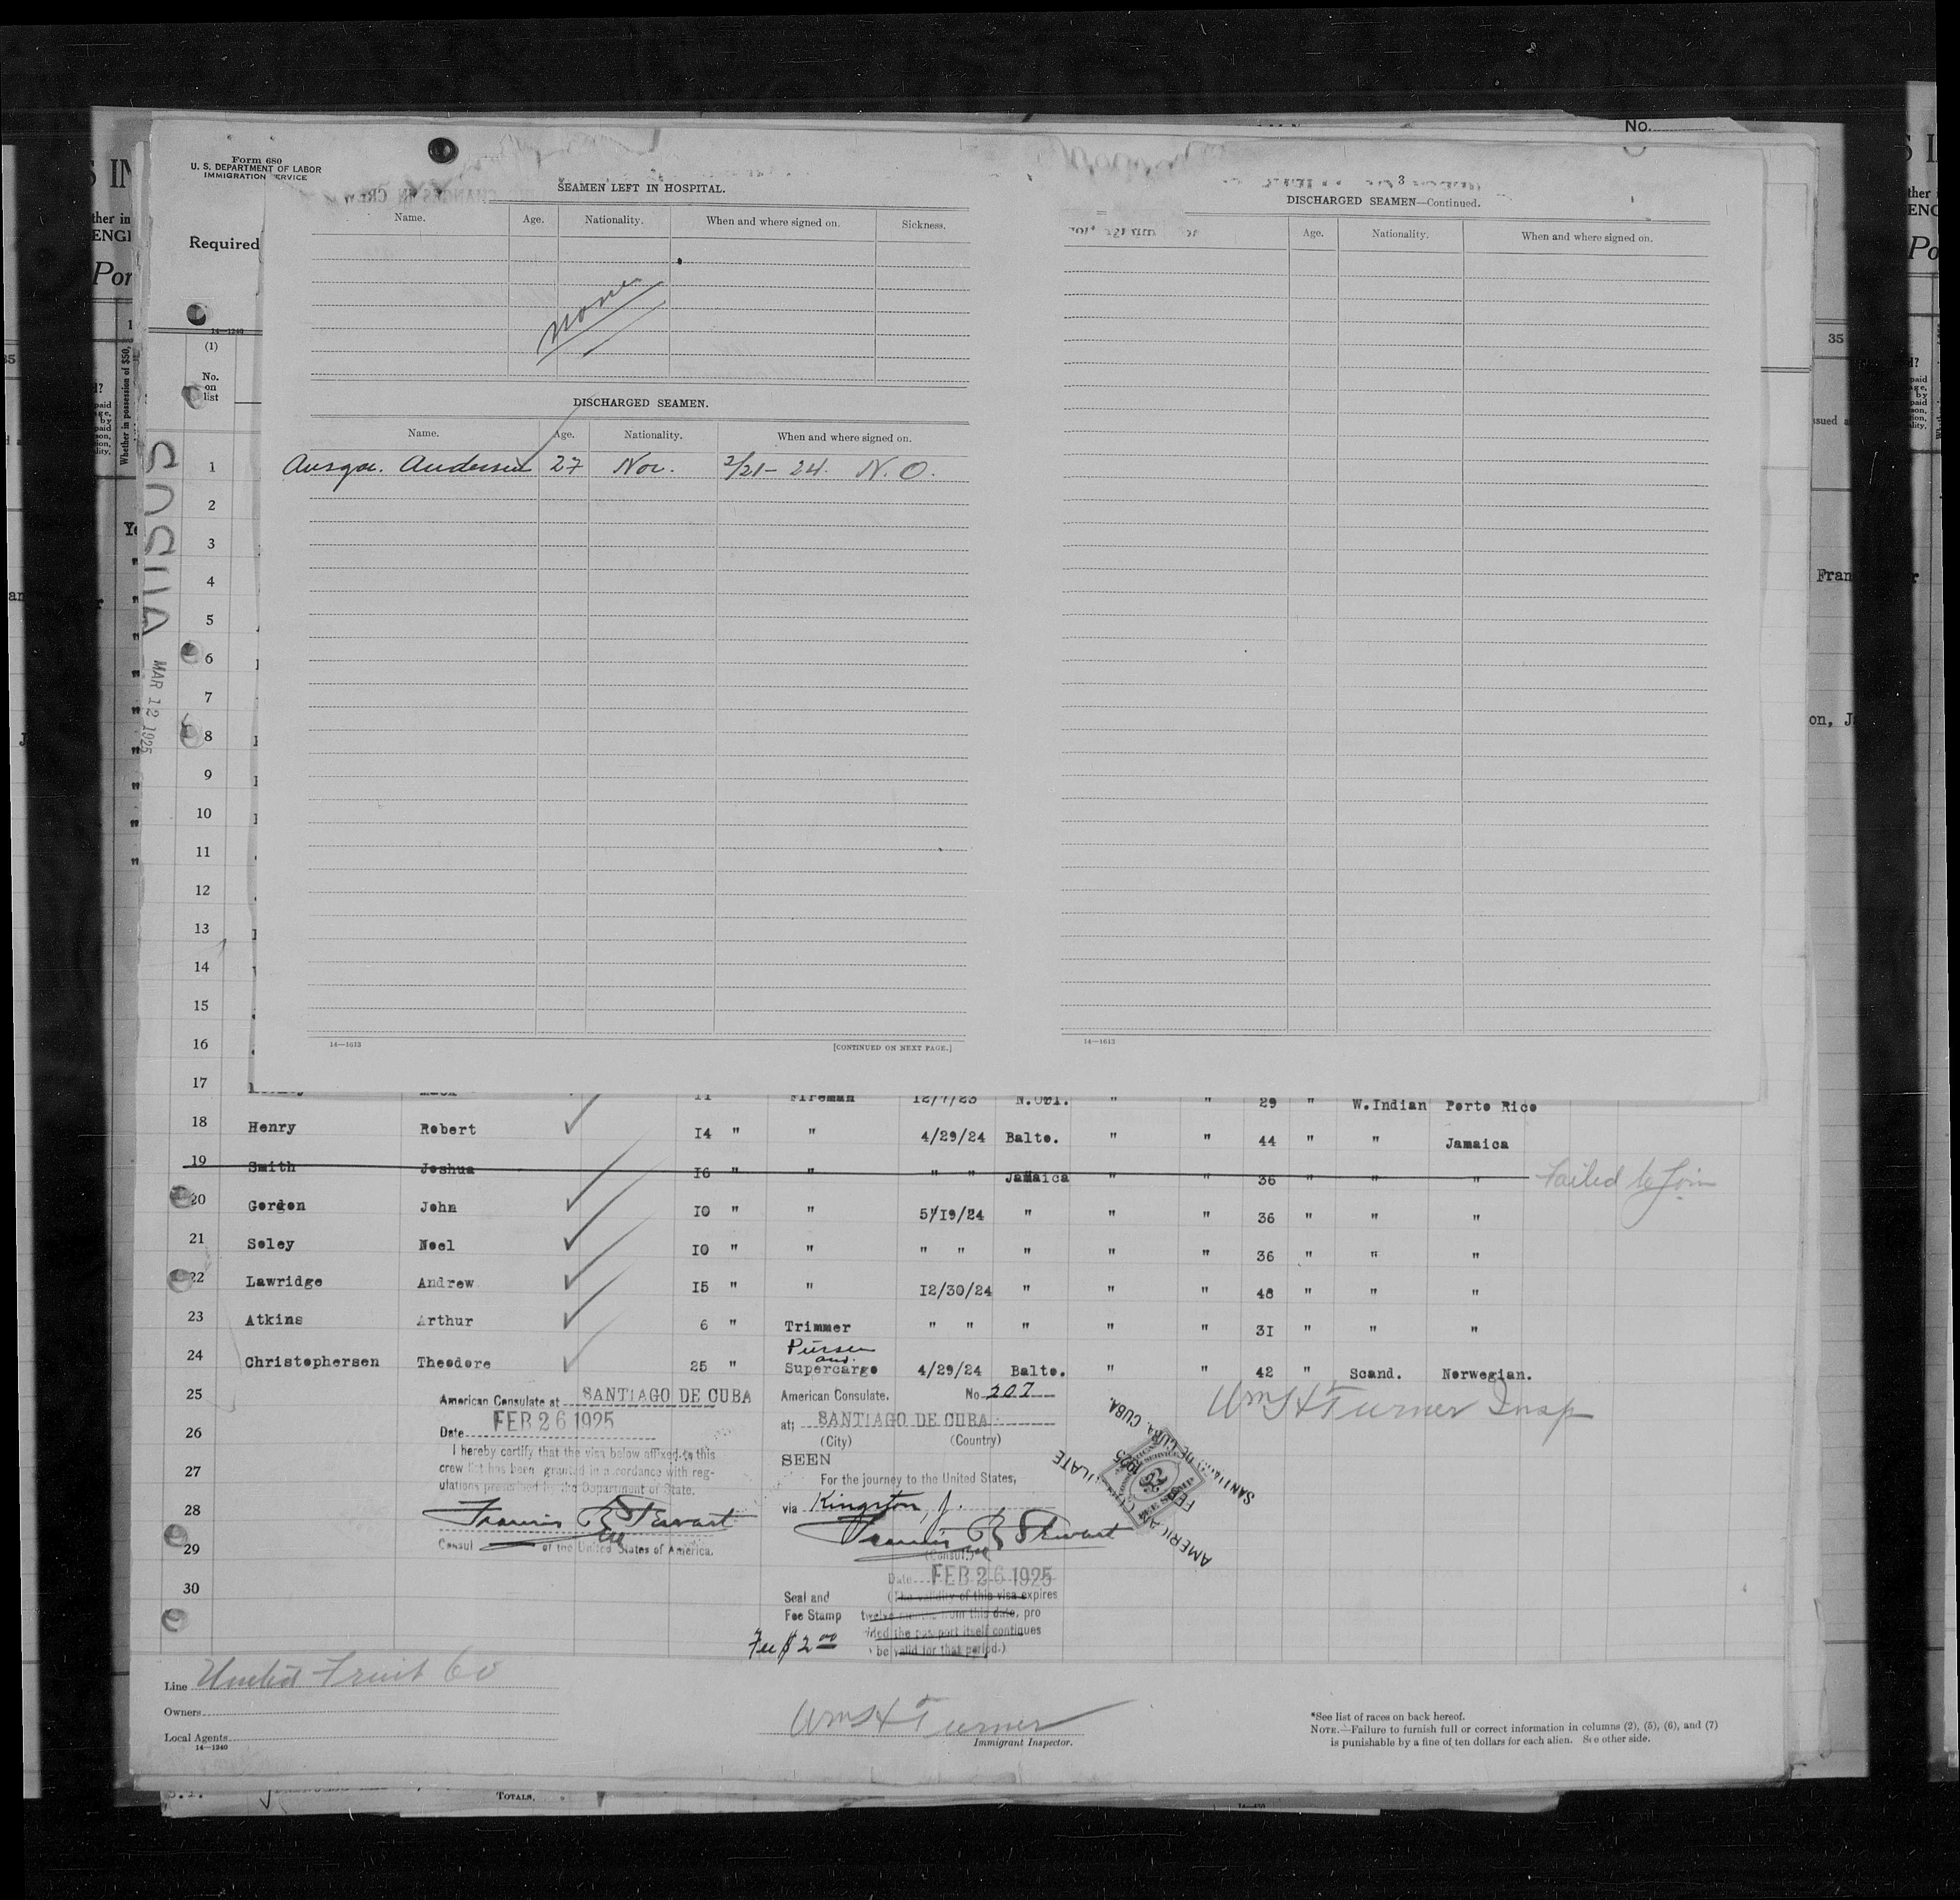 No.
Form 680
U. S. DEPARTMENT OF LABOR
IMMIGRATION SERVICE
Required
14—1240
(1)
No.
on
list
MAR 12 1925
SEAMEN LEFT IN HOSPITAL.
Name. Age. Nationality. When and where signed on. Sickness.
None
DISCHARGED SEAMEN.
Name. Age. Nationality. When and where signed on.
Andersen 27 Nor. 2/21-24. N.O.
14—1613 [CONTINUED ON NEXT PAGE.]
3
DISCHARGED SEAMEN—Continued.
Age. Nationality. When and where signed on.
14—1613
1
2
3
4
5
6
7
8
9
10
11
12
13
14
15
16
17 11 Fireman 12/7/23 N.Orl. " " 29 " W.Indian Porto Rico
18 Henry Robert 14 " " 4/29/24 Balto. " " 44 " " Jamaica
19 Smith Joshua 16 " " " " Jamaica " " 36 " " " Failed to Join
20 Gordon John 10 " " 5/19/24 " " " 36 " " "
21 Soley Noel 10 " " " " " " " 36 " " "
22 Lawridge Andrew 15 " " 12/30/24 " " " 48 " " "
23 Atkins Arthur 6 " Trimmer " " " " " 31 " " "
Purser
and
24 Christophersen Theodore 25 " Supercargo 4/29/24 Balto. " " 42 " Scand. Norwegian.
25
26
27
28
29
30
American Consulate at SANTIAGO DE CUBA
Date FEB 26 1925
I hereby certify that the visa below affixed to this
crew list has been granted in accordance with reg-
ulations prescribed by the Department of State.
Francis R Stewart
Consul of the United States of America.
American Consulate. No 207
at; SANTIAGO DE CUBA
(City) (Country)
SEEN
For the journey to the United States,
via Kingston, J.
Francis R Stewart
(Consul.)
Date FEB 26 1925
Seal and (The validity of this visa expires
Fee Stamp twelve months from this date, pro
vided the passport itself continues
be valid for that period.)
Fee $2 00
AMERICAN CONSULATE
SANTIAGO DE CUBA, CUBA.
FEB 1925
FEE STAMP
Wm H Turner Insp
Line United Fruit Co
Owners
Local Agents
14—1240
Wm H Turner
Immigrant Inspector.
*See list of races on back hereof.
NOTE.—Failure to furnish full or correct information in columns (2), (5), (6), and (7)
is punishable by a fine of ten dollars for each alien. See other side.
TOTALS,